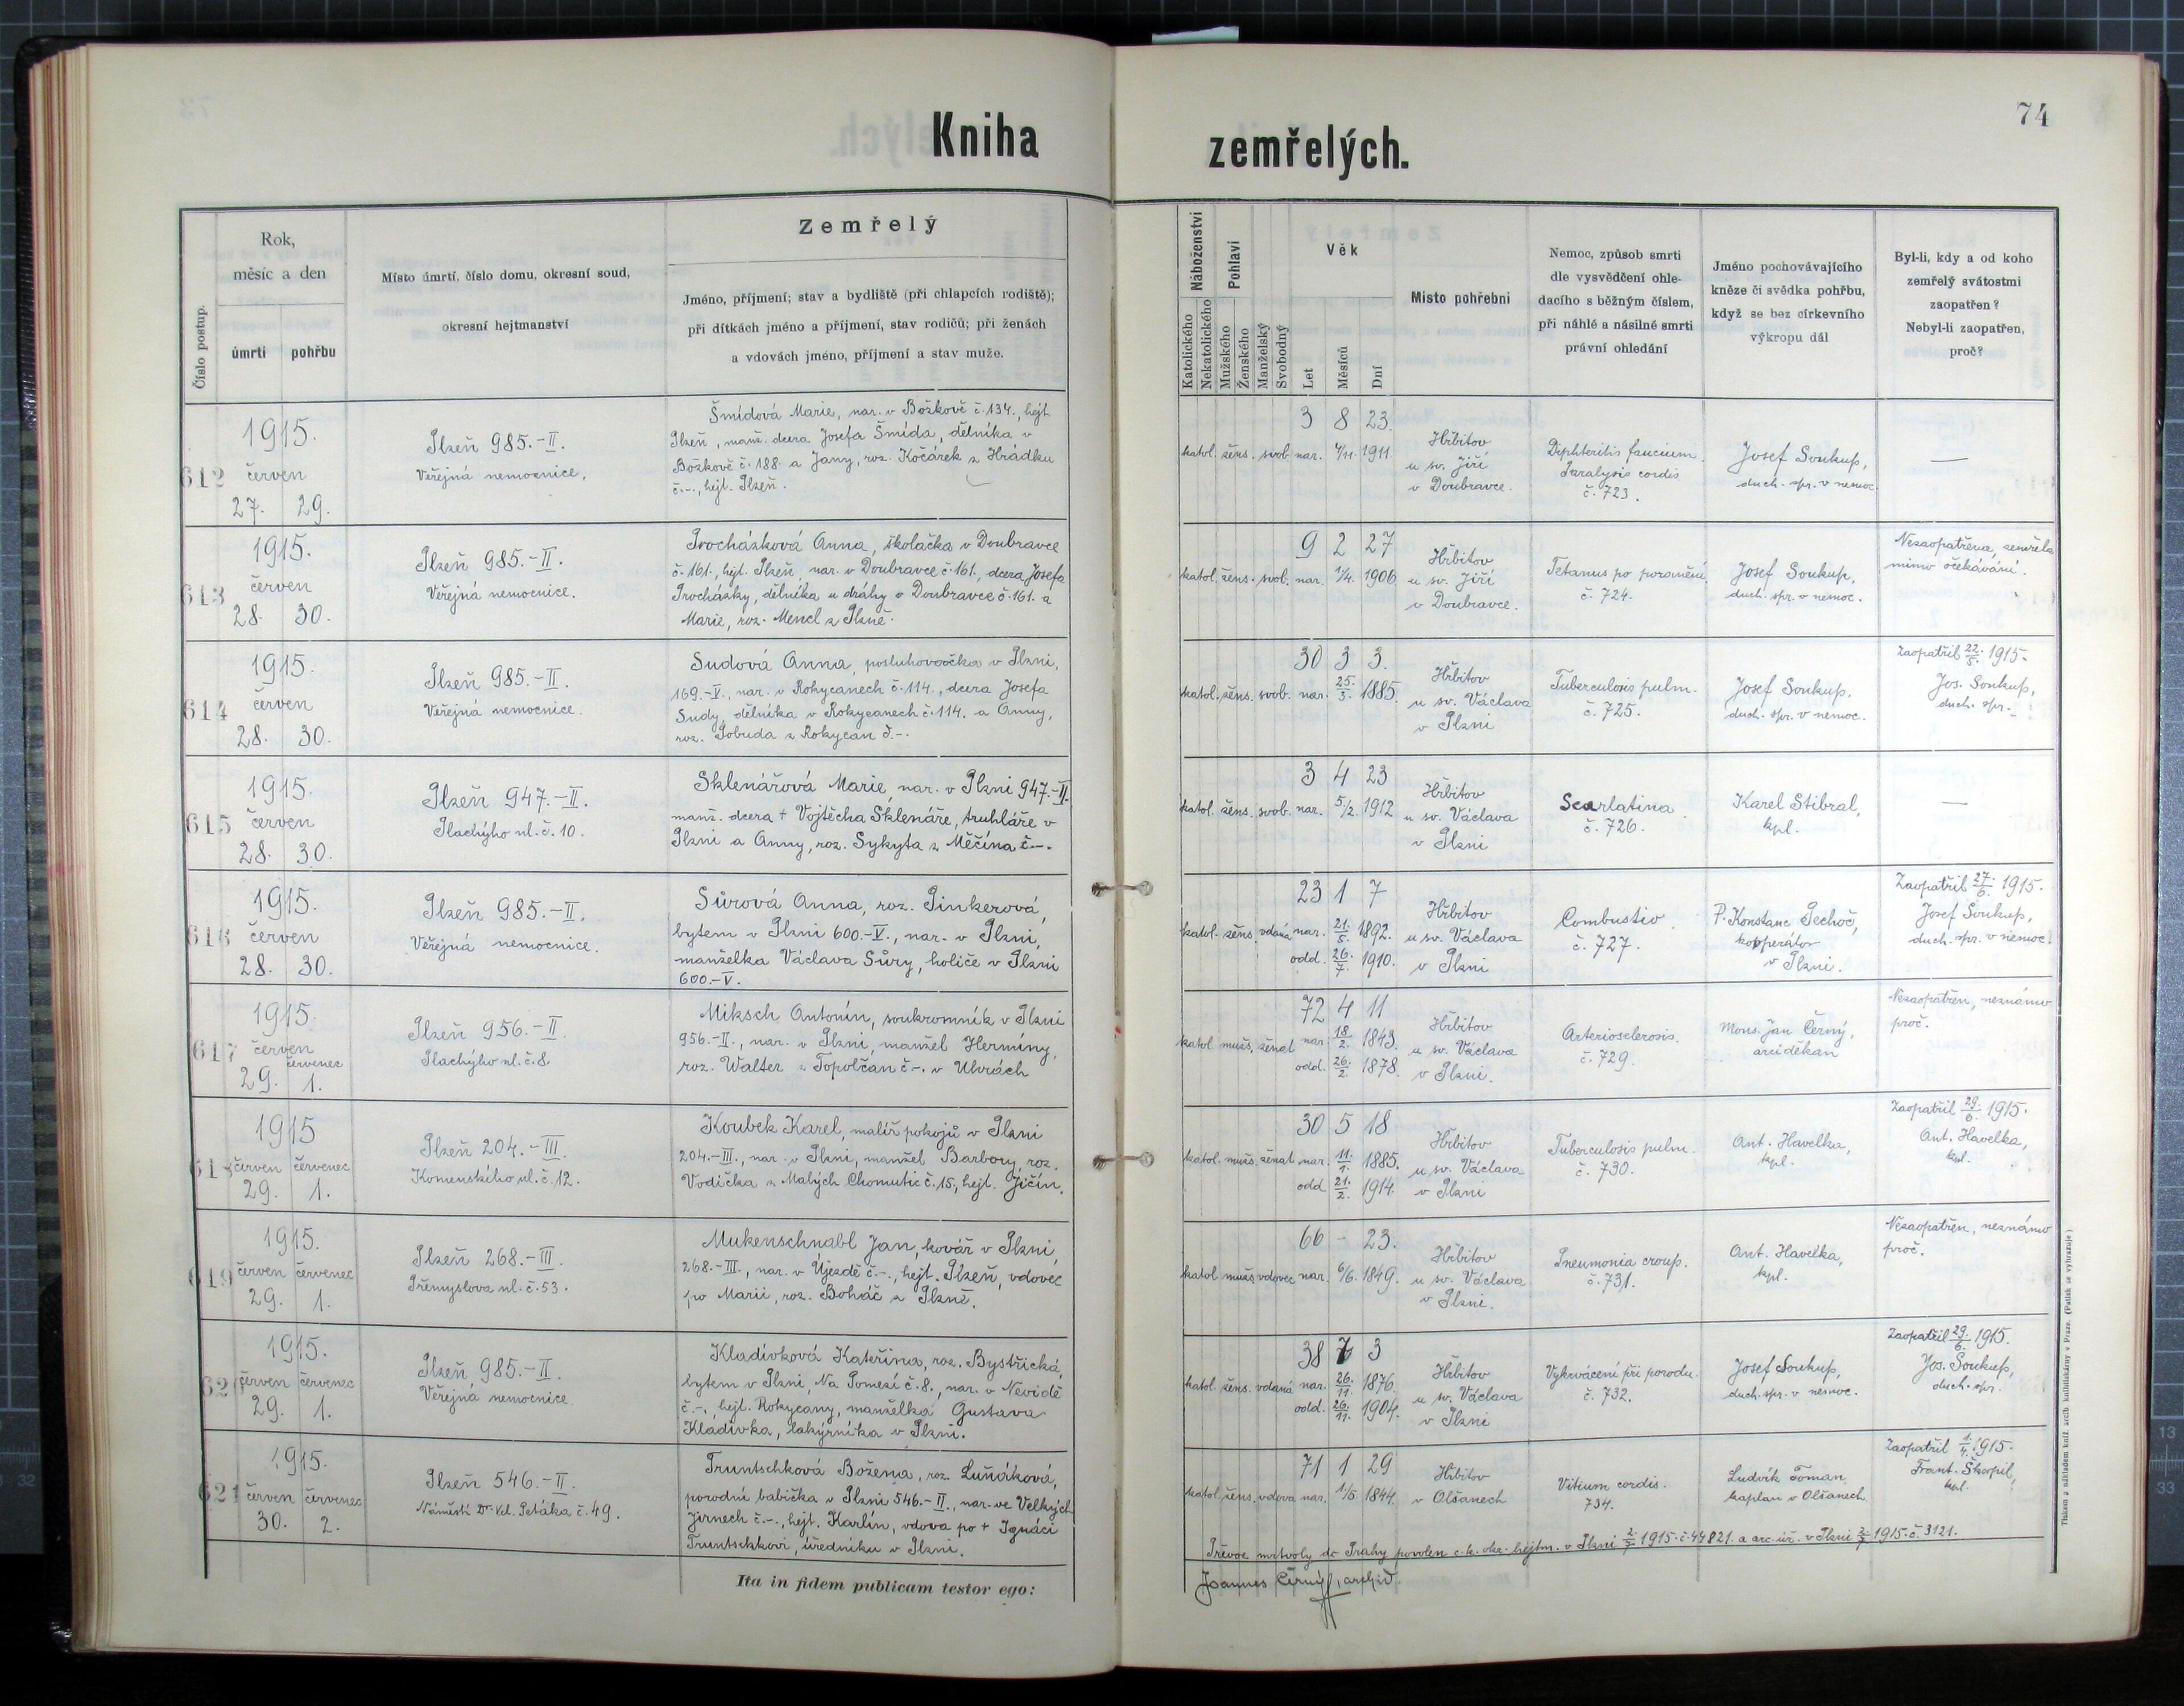 74
Kniha zemřelých.
Číslo postup.
Rok,
měsíc a den
úmrtí
pohřbu
Místo úmrtí, číslo domu, okresní soud,
okresní hejtmanství
Zemřelý
Jméno, příjmení; stav a bydliště (při chlapcích rodiště);
při dítkách jméno a příjmení, stav rodičů; při ženách
a vdovách jméno, příjmení a stav muže.
Náboženství
Katolického
Nekatolického
Pohlaví
Mužského
Ženského
Manželský
Svobodný
Věk
Let
Měsíců
Dní
Místo pohřební
Nemoc, způsob smrti
dle vysvědčení ohle-
dacího s běžným číslem,
při náhlé a násilné smrti
právní ohledání
Jméno pochovávajícího
kněze či svědka pohřbu,
když se bez církevního
výkropu dál
Byl-li, kdy a od koho
zemřelý svátostmi
zaopatřen?
Nebyl-li zaopatřen,
proč?
612
1915.
červen
27. 29.
Plzeň 985.-II.
Veřejná nemocnice.
Šmídová Marie, nar. v Božkově č. 134., hejt.
Plzeň, manž. dcera Josefa Šmída, dělníka v
Božkově č. 188. a Jany, roz. Kočárek z Hrádku
č.-., hejt. Plzeň.
3 8 23.
katol. žens. svob. nar. 4/11. 1911.
Hřbitov
u sv. Jiří
v Doubravce.
Diphteritis faucium.
Paralysis cordis
č. 723.
Josef Soukup,
duch. spr. v nemoc.
—
613
1915.
červen
28. 30.
Plzeň 985.-II.
Veřejná nemocnice.
Procházková Anna, školačka v Doubravce
č. 161., hejt. Plzeň, nar. v Doubravce č. 161., dcera Josefa
Procházky, dělníka u dráhy v Doubravce č. 161. a
Marie, roz. Mencl z Plzně.
9 2 27
katol. žens. svob. nar. 1/4. 1906.
Hřbitov
u sv. Jiří
v Doubravce.
Tetanus po poranění.
č. 724.
Josef Soukup,
duch. spr. v nemoc.
Nezaopatřena, zemřela
mimo očekávání.
614
1915.
červen
28. 30.
Plzeň 985.-II.
Veřejná nemocnice.
Sudová Anna, posluhovačka v Plzni,
169.-V., nar. v Rokycanech č. 114., dcera Josefa
Sudy, dělníka v Rokycanech č. 114. a Anny,
roz. Pobuda z Rokycan č.-.
30 3 3.
katol. žens. svob. nar. 25./3. 1885.
Hřbitov
u sv. Václava
v Plzni
Tuberculosis pulm.
č. 725.
Josef Soukup.
duch. spr. v nemoc.
Zaopatřil 22./5. 1915.
Jos. Soukup,
duch. spr.
615
1915.
červen
28. 30.
Plzeň 947.-II.
Plachýho ul. č. 10.
Sklenářová Marie, nar. v Plzni 947.-II.
manž. dcera † Vojtěcha Sklenáře, truhláře v
Plzni a Anny, roz. Sykyta z Měčína č.-.
3 4 23
katol. žens. svob. nar. 5/2. 1912
Hřbitov
u sv. Václava
v Plzni
Scarlatina.
č. 726.
Karel Stibral,
kpl.
—
616
1915.
červen
28. 30.
Plzeň 985.-II.
Veřejná nemocnice.
Sůrová Anna, roz. Pinkerová,
bytem v Plzni 600.-V., nar. v Plzni,
manželka Václava Sůry, holiče v Plzni
600.-V.
23 1 7
katol. žens. vdaná nar. 21./5. 1892.
odd. 26./7. 1910.
Hřbitov
u sv. Václava
v Plzni
Combustio.
č. 727.
P. Konstanc Pechoč,
kooperátor
v Plzni.
Zaopatřil 27./6. 1915.
Josef Soukup,
duch. spr. v nemoc.
617
1915.
červen červenec
29. 1.
Plzeň 956.-II.
Plachýho ul. č. 8.
Miksch Antonín, soukromník v Plzni
956.-II., nar. v Plzni, manžel Herminy,
roz. Walter z Topolčan č.-. v Uhrách
72 4 11
katol. mužs. ženat nar. 18./2. 1843.
odd. 26./2. 1878.
Hřbitov
u sv. Václava
v Plzni.
Arteriosclerosis.
č. 729.
Mons. Jan Černý,
arciděkan
Nezaopatřen, neznámo
proč.
618
1915
červen červenec
29. 1.
Plzeň 204.-III.
Komenského ul. č. 12.
Koubek Karel, malíř pokojů v Plzni
204.-III., nar. v Plzni, manžel Barbory, roz.
Vodička z Malých Chomutic č. 15., hejt. Jičín.
30 5 18
katol. mužs. ženat nar. 11./1. 1885.
odd. 21./2. 1914.
Hřbitov
u sv. Václava
v Plzni
Tuberculosis pulm.
č. 730.
Ant. Havelka,
kpl.
Zaopatřil 29./6. 1915.
Ant. Havelka,
kpl.
619
1915.
červen červenec
29. 1.
Plzeň 268.-III.
Přemyslova ul. č. 53.
Mukenschnabl Jan, kovář v Plzni,
268.-III., nar. v Újezdě č.-., hejt. Plzeň, vdovec
po Marii, roz. Boháč z Plzně.
66 - 23.
katol. mužs. vdovec nar. 6/6. 1849.
Hřbitov
u sv. Václava
v Plzni.
Pneumonia croup.
č. 731.
Ant. Havelka,
kpl.
Nezaopatřen, neznámo
proč.
620
1915.
červen červenec
29. 1.
Plzeň 985.-II.
Veřejná nemocnice.
Kladívková Kateřina, roz. Bystřická,
bytem v Plzni, Na Pomezí č. 8., nar. v Nevidě
č.-., hejt. Rokycany, manželka Gustava
Kladívka, lakýrníka v Plzni.
38 7 3
katol. žens. vdaná nar. 26./11. 1876.
odd. 26./11. 1904.
Hřbitov
u sv. Václava
v Plzni
Vykrvácení při porodu.
č. 732.
Josef Soukup,
duch. spr. v nemoc.
Zaopatřil 29./6. 1915.
Jos. Soukup,
duch. spr.
621
1915.
červen červenec
30. 2.
Plzeň 546.-II.
Náměstí Dr. Vil. Petáka č. 49.
Truntschková Božena, roz. Luňáková,
porodní babička v Plzni 546.-II., nar. ve Velkých
Jirnech č.-., hejt. Karlín, vdova po † Ignáci
Truntschkovi, úředníku v Plzni.
71 1 29
katol. žens. vdova nar. 1/5. 1844.
Hřbitov
v Olšanech
Vitium cordis.
734.
Ludvík Toman
kaplan v Olšanech
Zaopatřil 1./4. 1915.
Frant. Škorpil,
kpl.
Převoz mrtvoly do Prahy povolen c. k. okr. hejtm. v Plzni 2./7. 1915. č. 44821. a arc. úř. v Plzni 2./7. 1915. č. 3121.
Ita in fidem publicam testor ego:
Joannes Černý, archid.
Tiskem a nákladem kníž. arcib. knihtiskárny v Praze. (Patisk se vyhrazuje.)
13
32
33